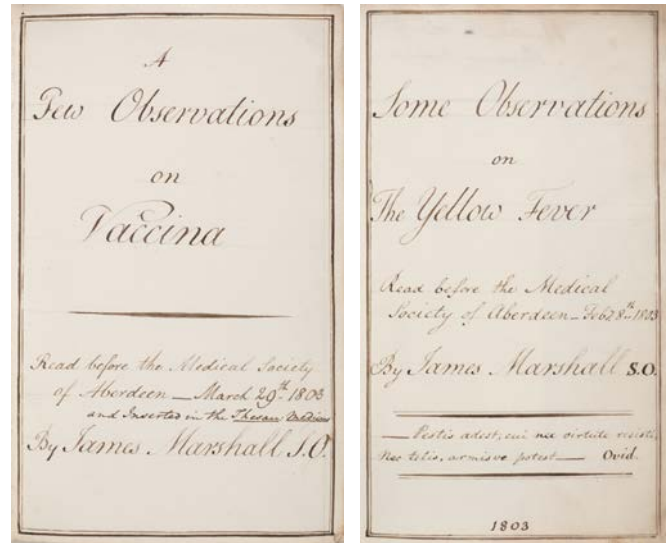 A
Few Observations
on
Vaccina
Read before the Medical Society
of Aberdeen — March 29th 1803
and Inserted in the Thesau Medicus
By James Marshall S.O.
Some Observations
on
The Yellow Fever
Read before the Medical
Society of Aberdeen — Feb 28th 1803
By James Marshall S.O.
— Pestis adest; cui nec virtute resisti,
Nec telis, armisve potest — Ovid.
1803